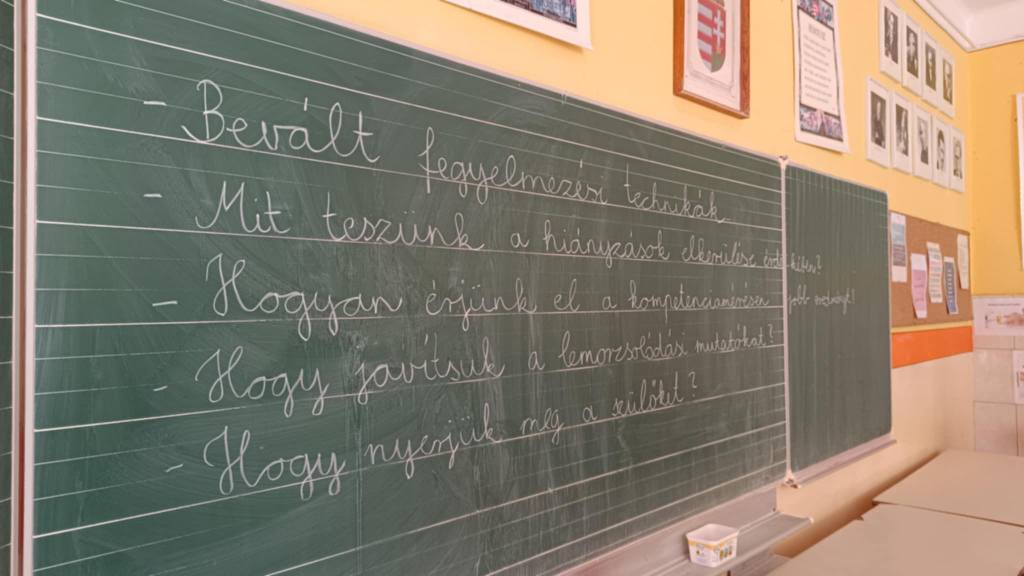 - Bevált fegyelmezési technikák
- Mit teszünk a hiányzások elkerülése érdekében?
- Hogyan érjünk el a kompetenciamérésen jobb eredményt?
- Hogy javítsuk a lemorzsolódási mutatókat?
- Hogy nyerjük meg a szülőket?